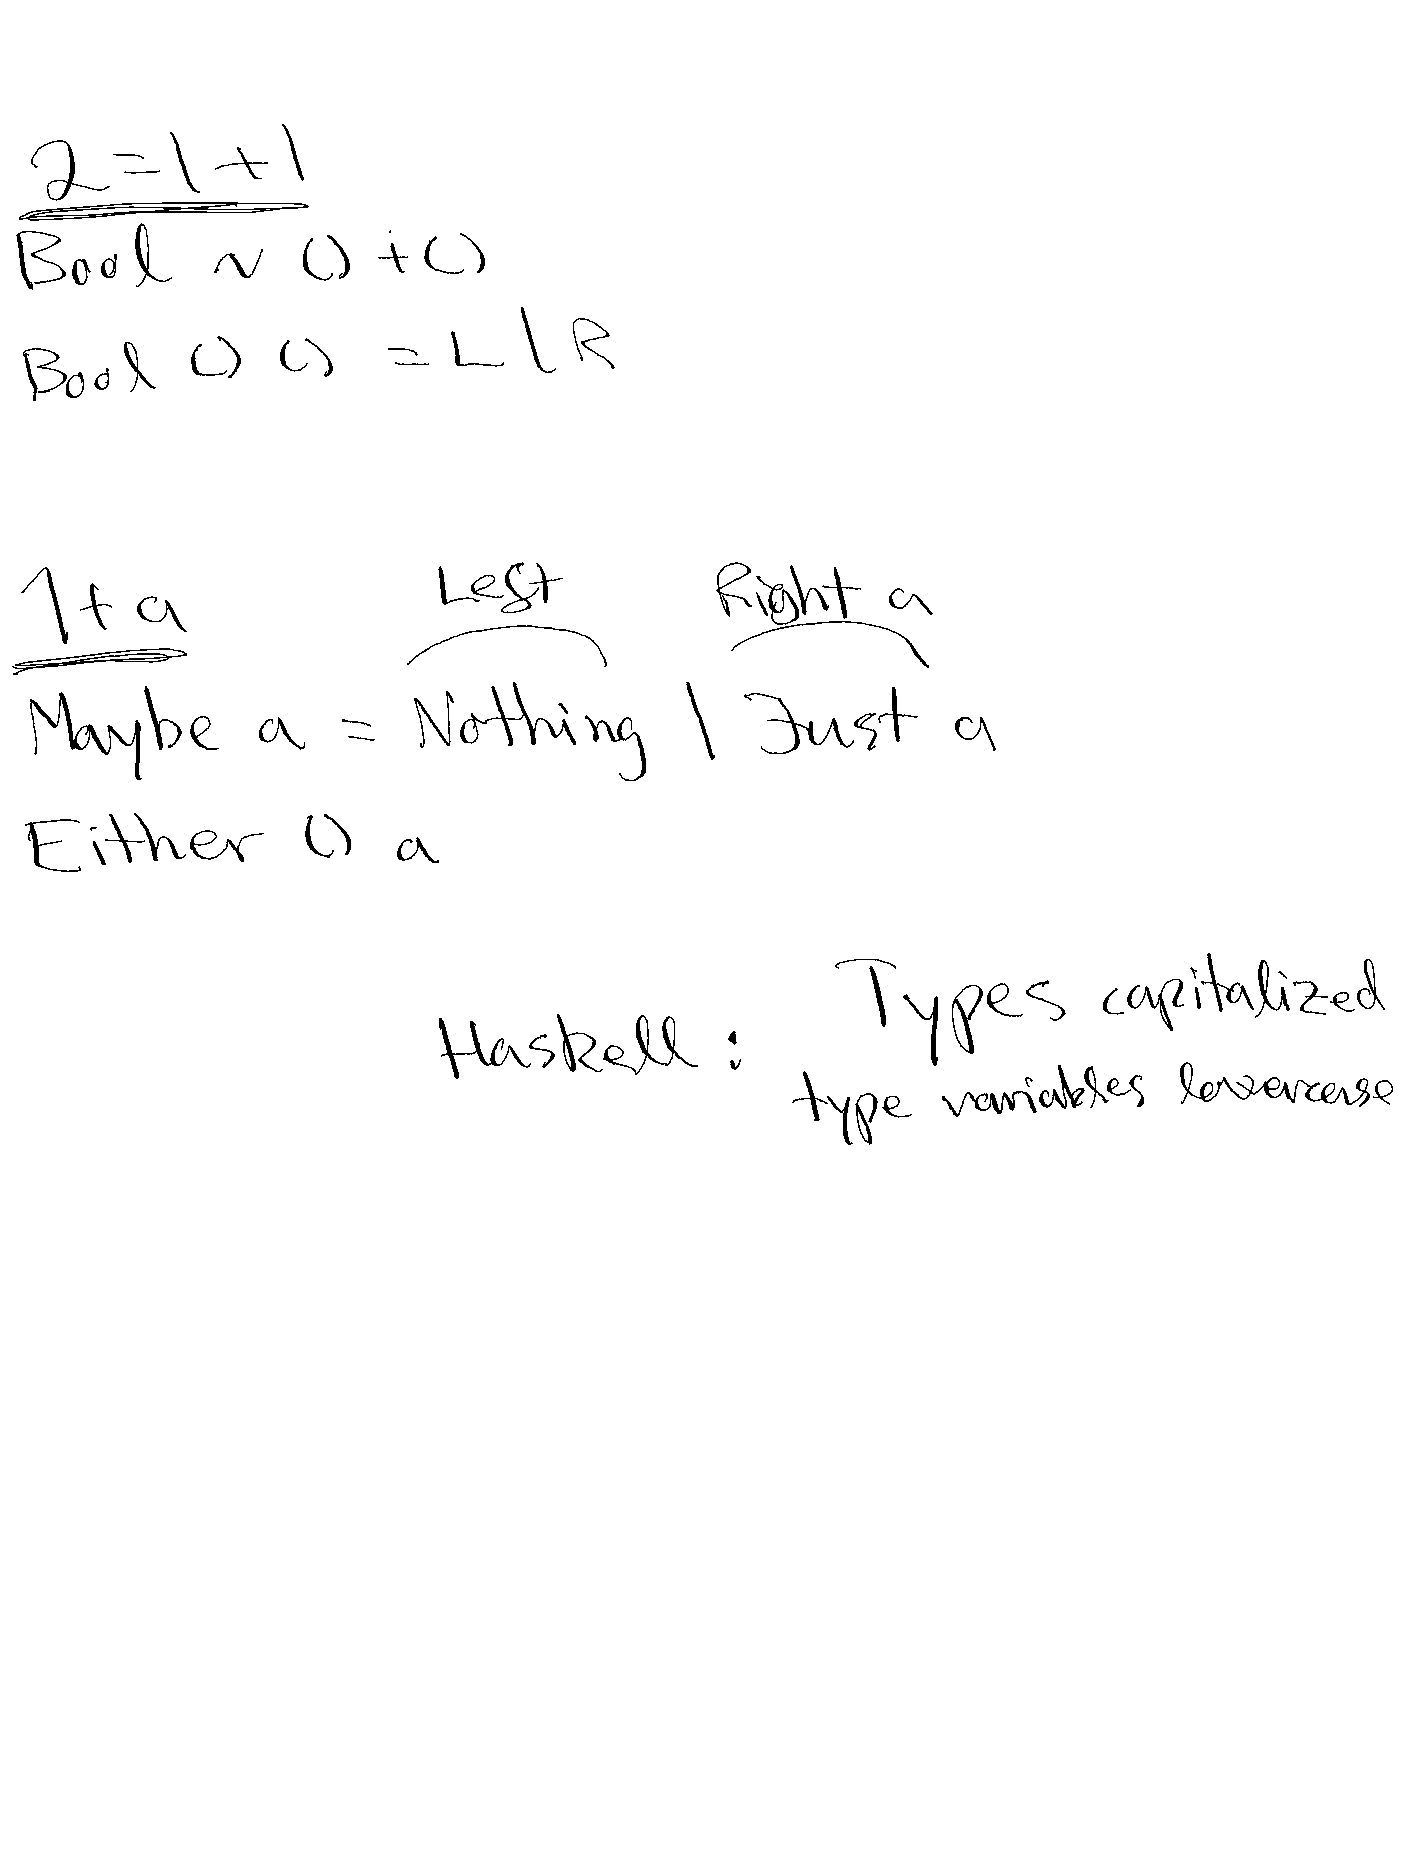 2 = 1 + 1
Bool ~ () + ()
Bool () () = L | R
1 + a
Left Right a
Maybe a = Nothing | Just a
Either () a
Types capitalized
Haskell :
type variables lowercase